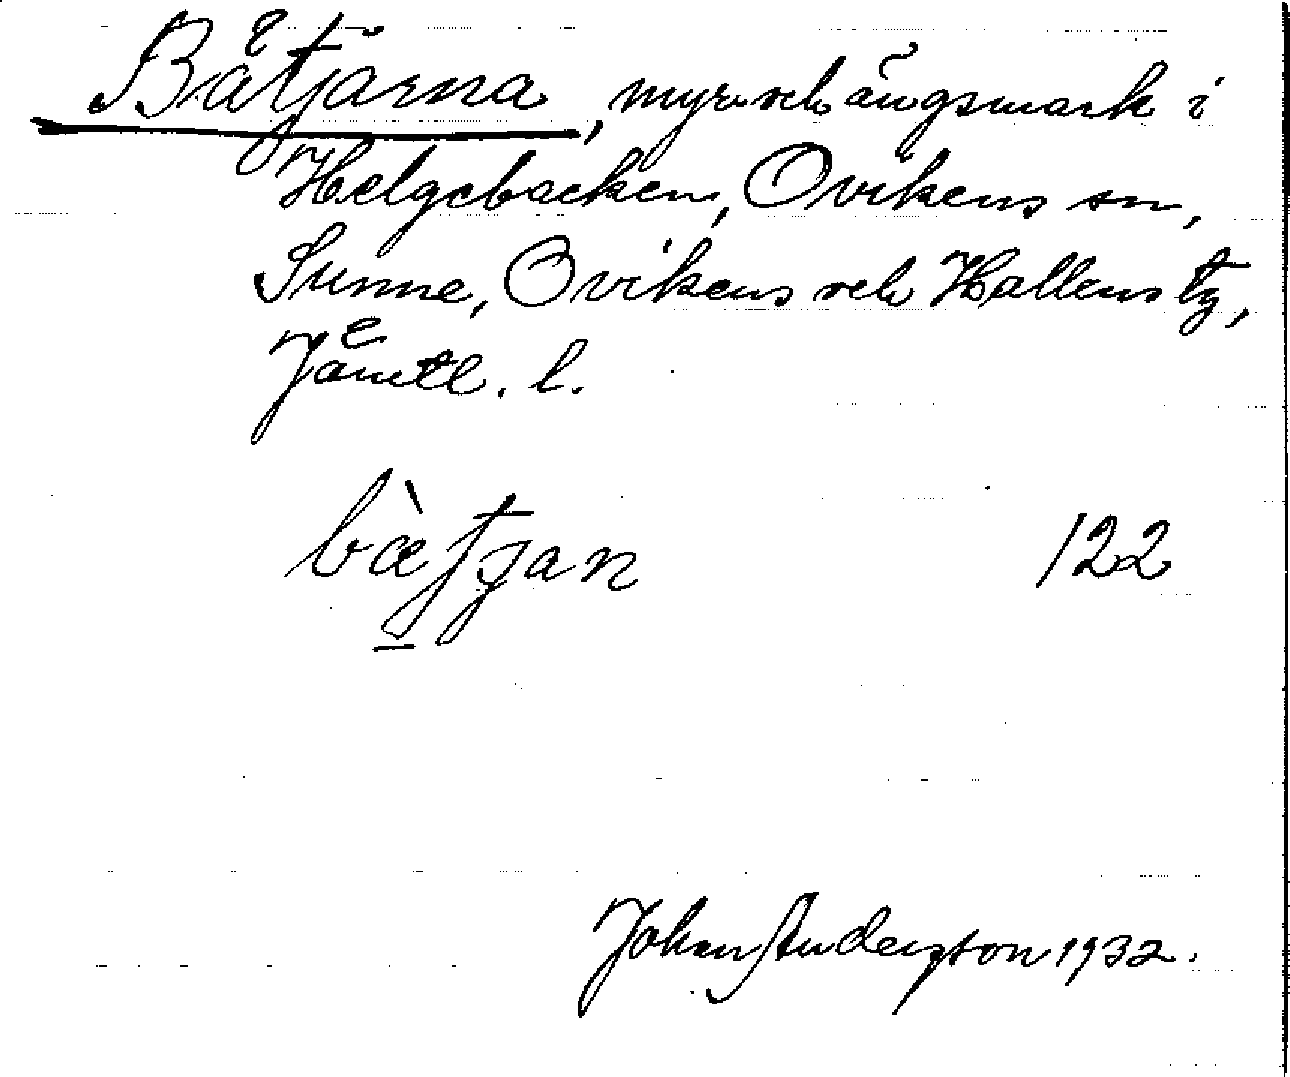 Båtjärna, myr och ängsmark i
Helgebacken, Ovikens sn,
Sunne, Ovikens och Hallens tg,
Jämtl. l.
bætjan 122
Johan Anderzon 1932.